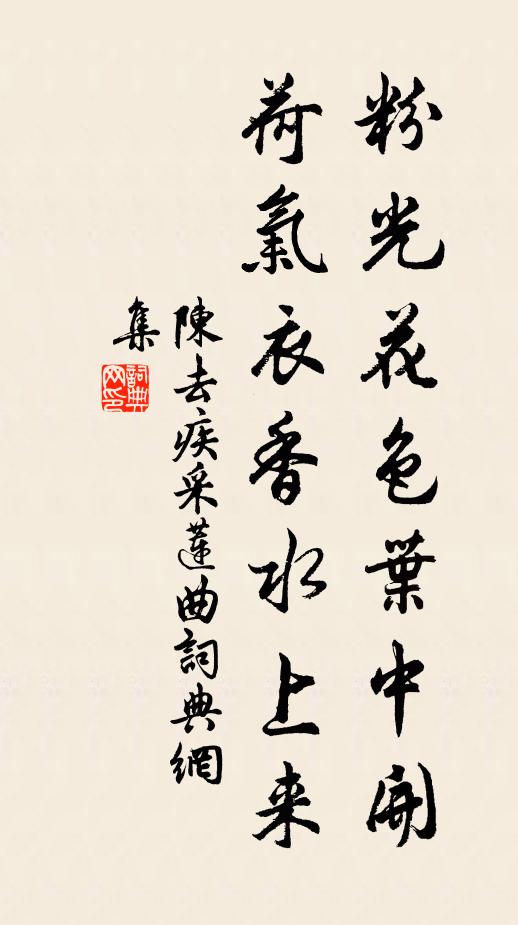 粉光花色葉中開
荷氣衣香水上来
陳去疾采蓮曲詞典網
集
詞典
网印